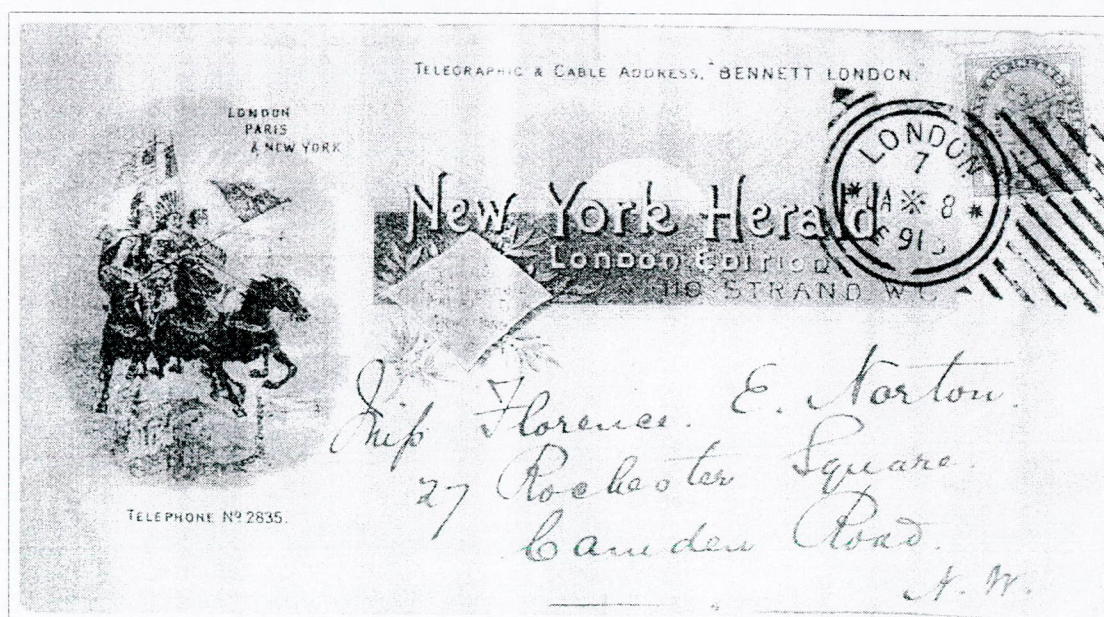 TELEGRAPHIC & CABLE ADDRESS, "BENNETT LONDON."
LONDON
PARIS
& NEW YORK
New York Herald
LONDON EDITION
110 STRAND W.C.
LONDON
7
JA 8
91
Miss Florence. E. Norton.
27 Rochester Square.
Camden Road.
N. W.
TELEPHONE Nº 2835.